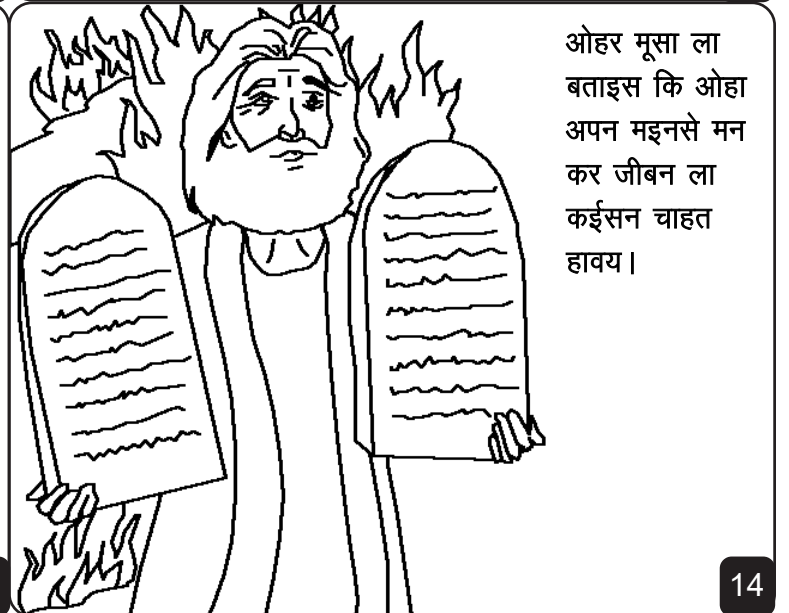 ओहर मूसा ला
बताइस कि ओहा
अपन मइनसे मन
कर जीबन ला
कईसन चाहत
हावय।
14